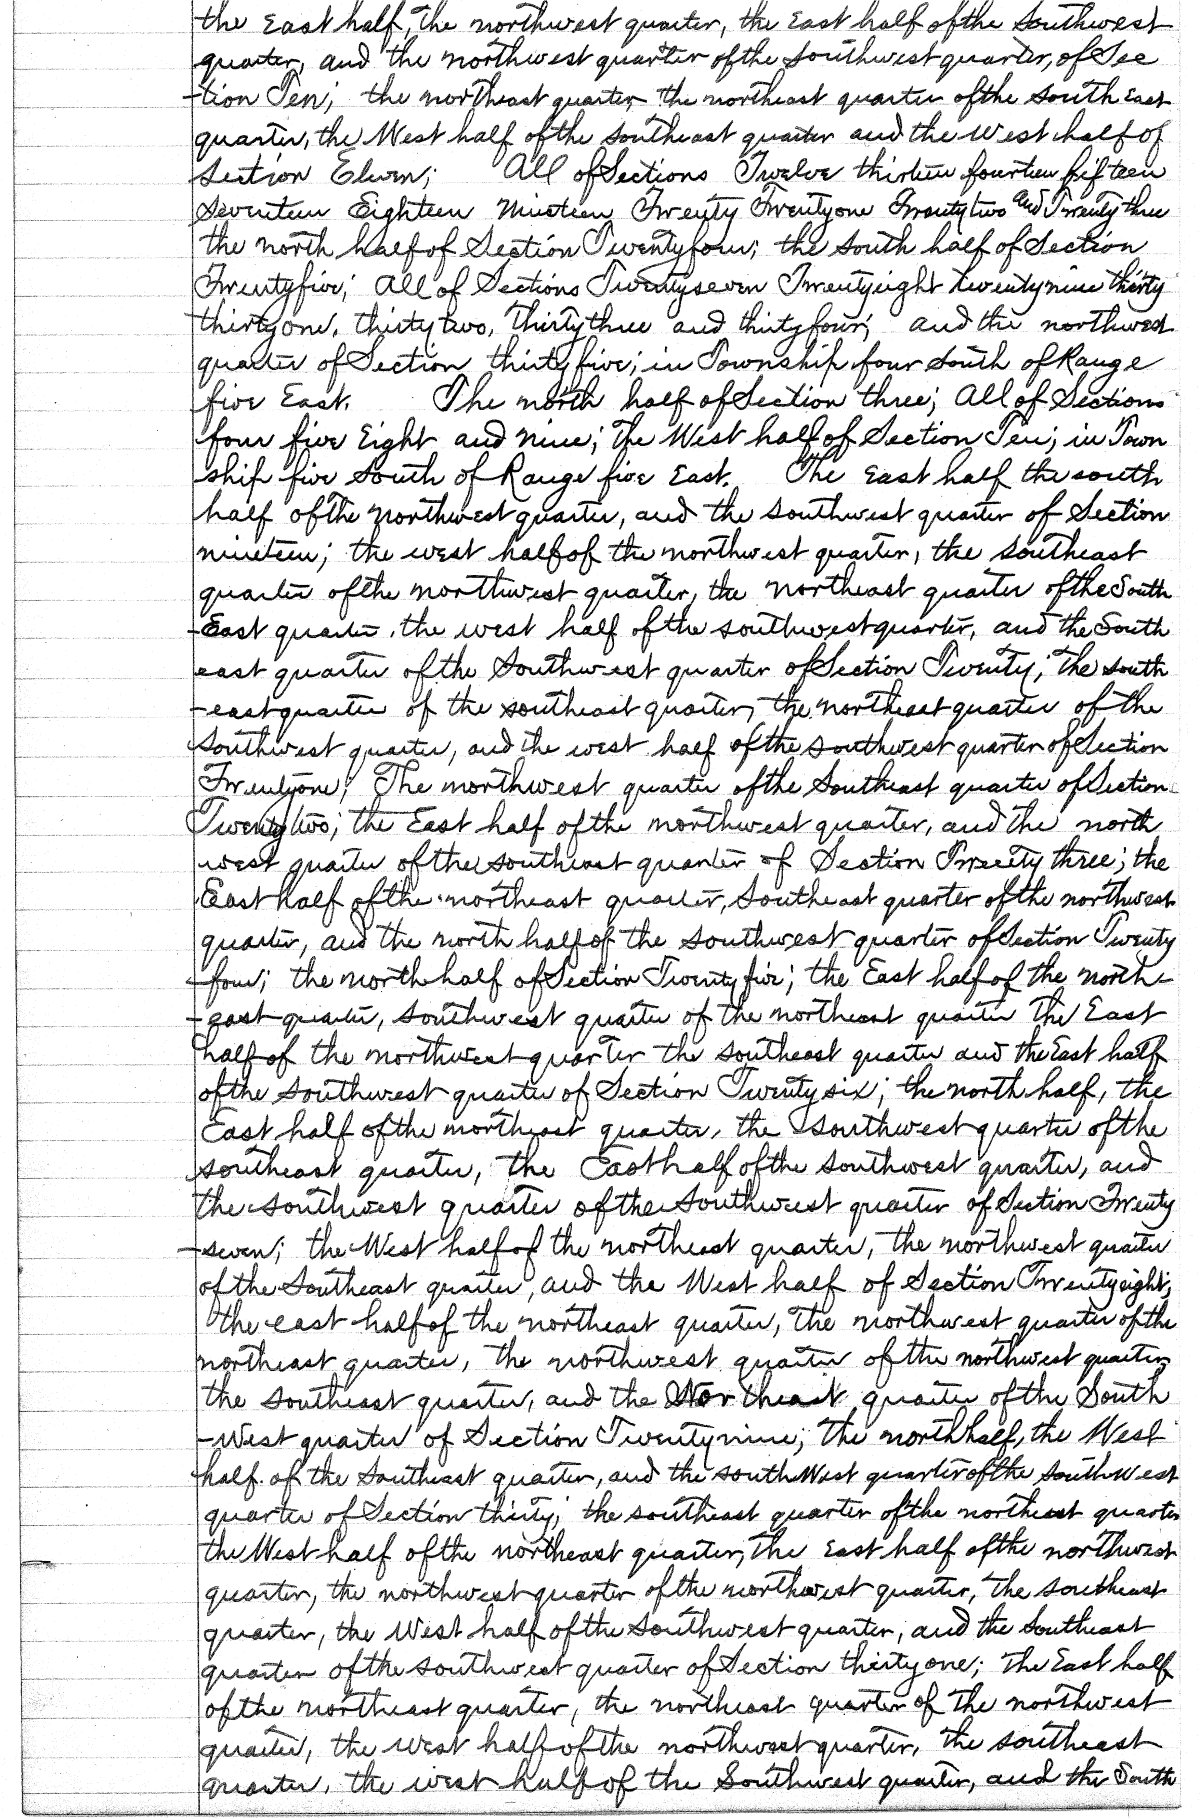 the East half, the northwest quarter, the East half of the Southwest
quarter, and the northwest quarter of the Southwest quarter, of Sec
-tion Ten; the northeast quarter the northeast quarter of the South East
quarter, the West half of the Southeast quarter and the West half of
Section Eleven; All of Sections Twelve thirteen fourteen fifteen
Seventeen Eighteen Nineteen Twenty Twentyone Twentytwo and Twentythree
the north half of Section Twentyfour; the South half of Section
Twentyfive; All of Sections Twentyseven Twentyeight twentynine thirty
thirtyone, thirtytwo, Thirtythree and thirtyfour; and the northwest
quarter of Section thirtyfive; in Township four South of Range
five East. The north half of Section three; All of Sections
four five Eight and nine; the West half of Section Ten; in Town
ship five South of Range five East. The East half the south
half of the northwest quarter, and the Southwest quarter of Section
nineteen; the west half of the northwest quarter, the Southeast
quarter of the northwest quarter, the northeast quarter of the South
-East quarter, the west half of the southwest quarter, and the South
east quarter of the Southwest quarter of Section Twenty; the south
-east quarter of the southeast quarter, the northeast quarter of the
Southwest quarter, and the west half of the Southwest quarter of Section
Twentyone; The northwest quarter of the Southeast quarter of Section
Twentytwo; the East half of the northwest quarter, and the north
west quarter of the southeast quarter of Section Twenty three; the
East half of the northeast quarter, Southeast quarter of the northwest
quarter, and the north half of the Southwest quarter of Section Twenty
-four; the north half of Section Twentyfive; the East half of the north-
-east quarter, Southwest quarter of the northeast quarter the East
half of the northwest quarter the Southeast quarter and the East half
of the Southwest quarter of Section Twentysix; the north half, the
East half of the northeast quarter, the Southwest quarter of the
southeast quarter, the East half of the Southwest quarter, and
the Southwest quarter of the Southwest quarter of Section Twenty
-seven; the West half of the northeast quarter, the northwest quarter
of the Southeast quarter, and the West half of Section Twentyeight;
the east half of the northeast quarter, the northwest quarter of the
northeast quarter, the northwest quarter of the northwest quarter,
the Southeast quarter, and the Northeast quarter of the South
-West quarter of Section Twentynine; the north half, the West
half of the Southeast quarter, and the southWest quarter of the Southwest
quarter of Section thirty; the southeast quarter of the northeast quarter
the West half of the northeast quarter, the East half of the northwest
quarter, the northwest quarter of the northwest quarter, the southeast
quarter, the West half of the Southwest quarter, and the Southeast
quarter of the Southwest quarter of Section thirtyone; the East half
of the northeast quarter, the northeast quarter of the northwest
quarter, the West half of the northwest quarter, the southeast
quarter, the west half of the Southwest quarter, and the South